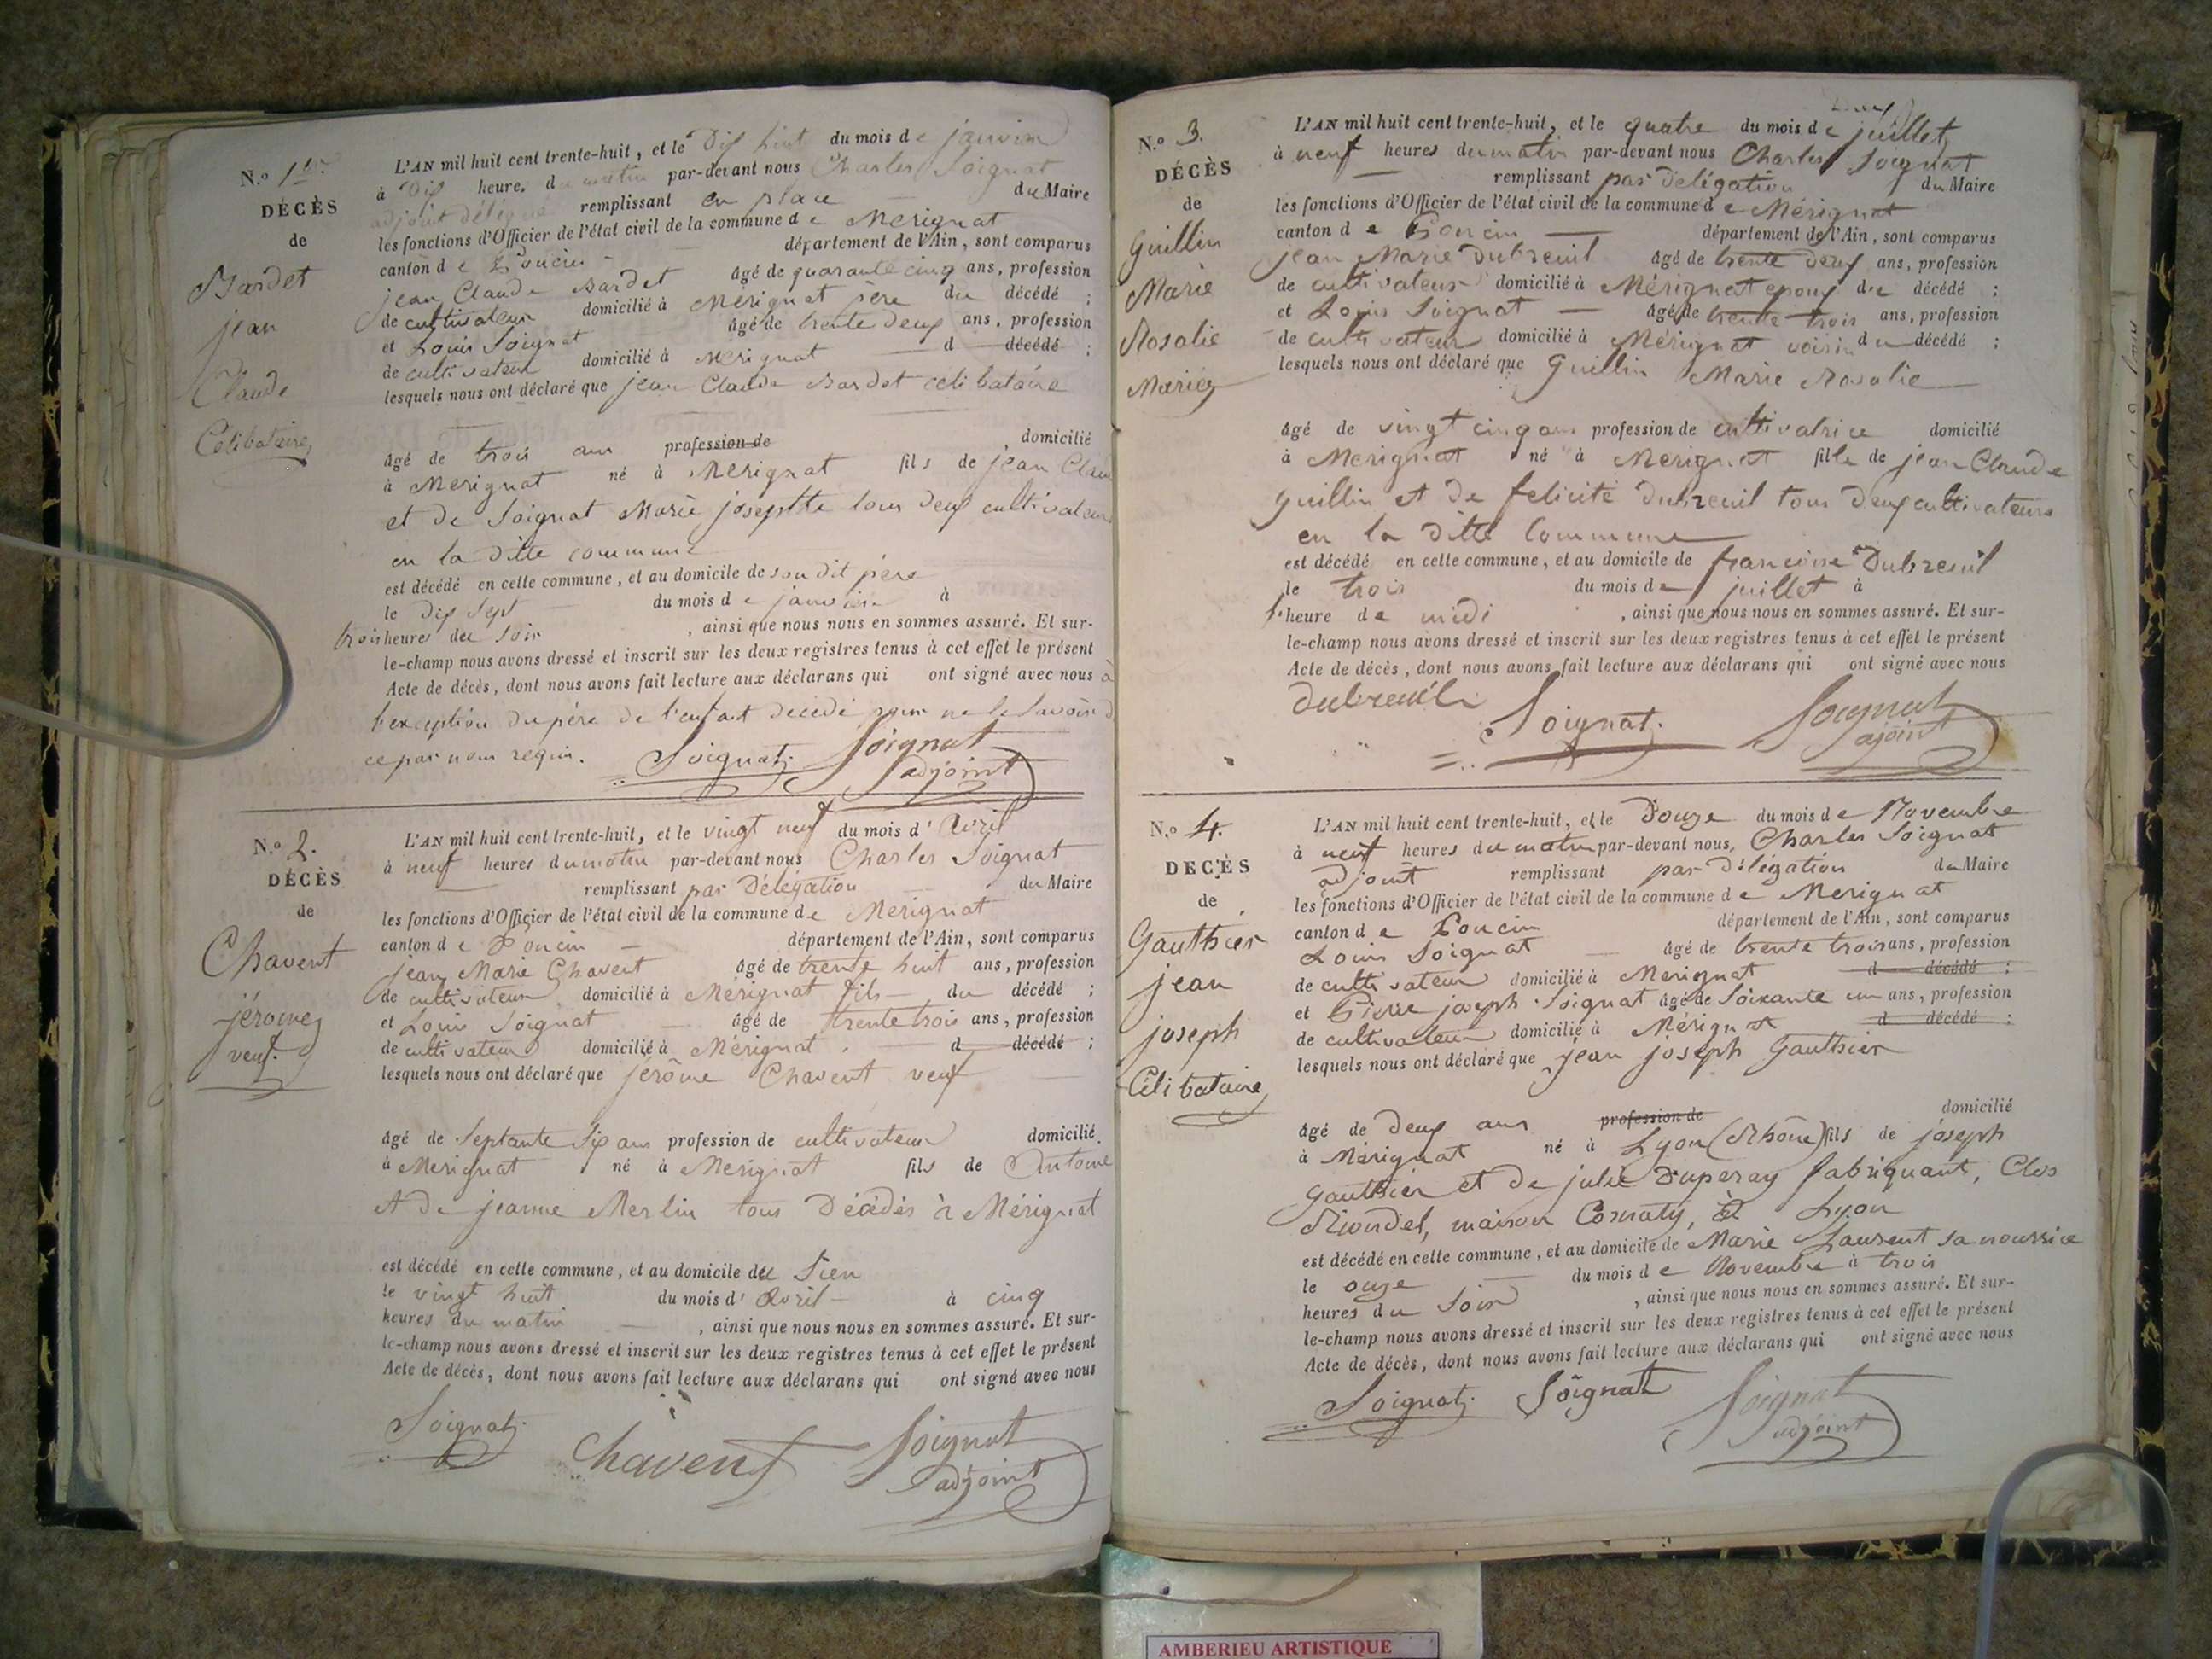 N.o 1er.
DÉCÈS
de
Bardet
jean
Claude
Célibataire
L'AN mil huit cent trente-huit, et le Dix huit du mois de janvier
à Dix heures du matin par-devant nous Charles Soignat
adjoint délégué remplissant en place du Maire
les fonctions d'Officier de l'état civil de la commune de Merignat
canton de Poncin département de l'Ain, sont comparus
jean Claude Bardet âgé de quarante cinq ans, profession
de cultivateur domicilié à Mérignat père du décédé ;
et Louis Soignat âgé de trente deux ans, profession
de cultivateur domicilié à Merignat d décédé ;
lesquels nous ont déclaré que jean Claude Bardet célibataire
âgé de trois ans profession de domicilié
à Merignat né à Merignat fils de jean Clau
et de Soignat Marie josephte tous deux cultivateurs
en la ditte commune
est décédé en cette commune, et au domicile de son dit père
le dix sept du mois de janvier à
trois heures du soir , ainsi que nous nous en sommes assuré. Et sur-
le-champ nous avons dressé et inscrit sur les deux registres tenus à cet effet le présent
Acte de décès, dont nous avons fait lecture aux déclarans qui ont signé avec nous à
l'exception du père de l'enfant décédé pour ne le savoir d
ce par nous requis. Soignat. Soignat
adjoint
N.o 2.
DÉCÈS
de
Chavent
jérome
veuf.
L'AN mil huit cent trente-huit, et le vingt neuf du mois d'Avril
à neuf heures du matin par-devant nous Charles Soignat
remplissant par Délégation du Maire
les fonctions d'Officier de l'état civil de la commune de Merignat
canton de Poncin département de l'Ain, sont comparus
jean Marie Chavent âgé de trente huit ans, profession
de cultivateur domicilié à Merignat fils du décédé ;
et Louis Soignat âgé de trente trois ans, profession
de cultivateur domicilié à Mérignat. d décédé ;
lesquels nous ont déclaré que jérôme Chavent veuf
âgé de Septante Six ans profession de cultivateur domicilié
à Merignat né à Merignat fils de Antoine
et de jeanne Merlin tous Décédés à Mérignat
est décédé en cette commune, et au domicile du Sien
le vingt huit du mois d'Avril à cinq
heures du matin , ainsi que nous nous en sommes assuré. Et sur-
le-champ nous avons dressé et inscrit sur les deux registres tenus à cet effet le présent
Acte de décès, dont nous avons fait lecture aux déclarans qui ont signé avec nous
Soignat. Chavent Soignat
adjoint
N.o 3.
DÉCÈS
de
Guillin
Marie
Rosalie
Mariée
L'AN mil huit cent trente-huit, et le quatre du mois de juillet
à neuf heures du matin par-devant nous Charles Soignat
remplissant par délégation du Maire
les fonctions d'Officier de l'état civil de la commune de Mérignat
canton de Poncin département de l'Ain, sont comparus
jean Marie Dubreuil âgé de trente deux ans, profession
de cultivateur domicilié à Mérignat epoux du décédé ;
et Louis Soignat âgé de trente trois ans, profession
de cultivateur domicilié à Mérignat voisin du décédé ;
lesquels nous ont déclaré que Guillin Marie Rosalie
âgé de vingt cinq ans profession de cultivatrice domicilié
à Merignat né à Merignat fille de jean Claude
guillin et de felicité Dubreuil tous deux cultivateurs
en la ditte Commune
est décédé en cette commune, et au domicile de françoise Dubreuil
le trois du mois de juillet à
l'heure de midi , ainsi que nous nous en sommes assuré. Et sur-
le-champ nous avons dressé et inscrit sur les deux registres tenus à cet effet le présent
Acte de décès, dont nous avons fait lecture aux déclarans qui ont signé avec nous
Dubreuil Soignat. Soignat
ajoint
N.o 4.
DECÈS
de
Gauthier
jean
joseph
Célibataire
L'AN mil huit cent trente-huit, et le Douze du mois de Novembre
à neuf heures du matin par-devant nous, Charles Soignat
adjoint remplissant par délégation du Maire
les fonctions d'Officier de l'état civil de la commune de Merignat
canton de Poncin département de l'Ain, sont comparus
Louis Soignat âgé de trente trois ans, profession
de cultivateur domicilié à Merignat d décédé ;
et Pierre joseph Soignat âgé de Soixante un ans, profession
de cultivateur domicilié à Mérignat d décédé ;
lesquels nous ont déclaré que jean joseph Gauthier
âgé de deux ans profession de domicilié
à Mérignat né à Lyon (Rhône) fils de joseph
Gauthier et de julie Duperay fabriquant, Clos
Riondel, maison Cornaty, à Lyon
est décédé en cette commune, et au domicile de Marie Laurent sa nourrice
le onze du mois de Novembre à trois
heures du Soir , ainsi que nous nous en sommes assuré. Et sur-
le-champ nous avons dressé et inscrit sur les deux registres tenus à cet effet le présent
Acte de décès, dont nous avons fait lecture aux déclarans qui ont signé avec nous
Soignat. Soignat Soignat
adjoint
AMBERIEU ARTISTIQUE